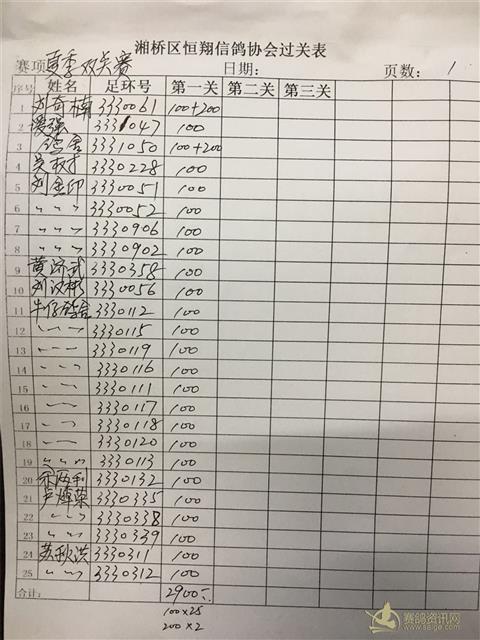 湘桥区恒翔信鸽协会过关表
赛项 夏季双关赛 日期: 页数: 1
序号 姓名 足环号 第一关 第二关 第三关
1 刘奇楠 3330061 100+200
2 谖强 3331047 100
3 鸽舍 3331050 100+200
4 吴 3330228 100
5 刘金印 3330051 100
6 〃 〃 〃 3330052 100
7 〃 〃 〃 3330906 100
8 〃 〃 〃 3330902 100
9 黄济武 3330358 100
10 刘汉彬 3330056 100
11 牛仔鸽舍 3330112 100
12 〃 〃 3330115 100
13 〃 〃 3330119 100
14 〃 〃 3330116 100
15 〃 〃 3330111 100
16 〃 〃 3330117 100
17 〃 〃 3330118 100
18 〃 〃 3330120 100
19 〃 〃 〃 3330113 100
20 3330132 100
21 卢焯荣 3330335 100
22 〃 〃 3330338 100
23 〃 〃 3330339 100
24 苏秋洪 3330311 100
25 〃 〃 3330312 100
合计: 2900
100×25
200×2
赛鸽资讯网
www.saige.com